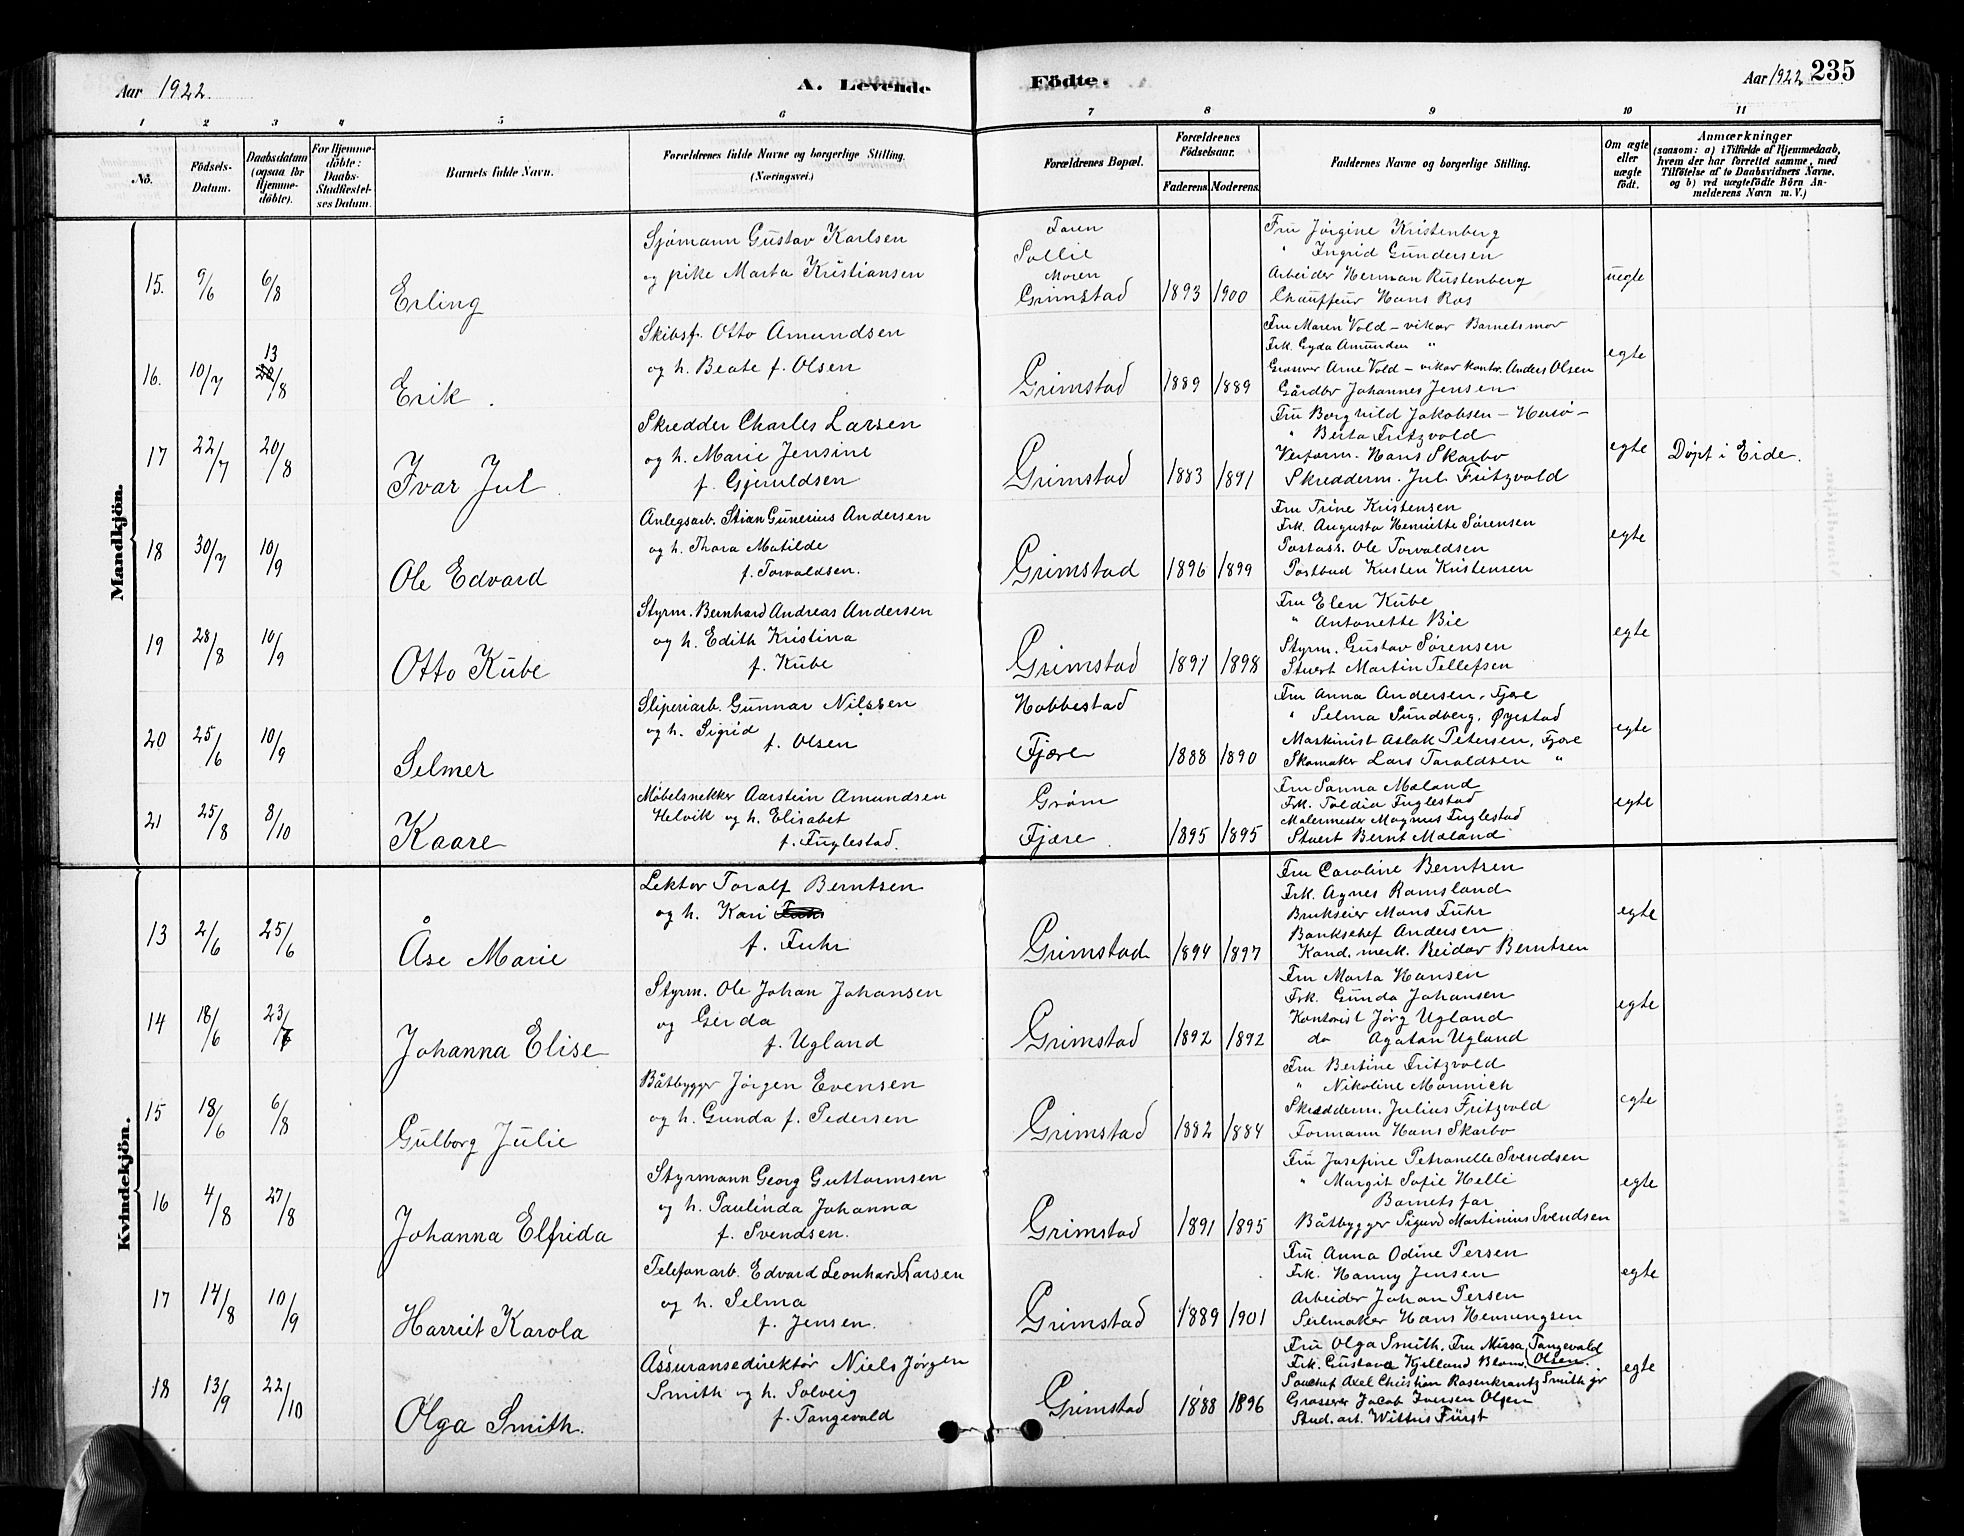 Aar 1922.
A. Levende
Födte.
Aar 1922
235
1 2 3 4 5 6 7 8 9 10 11
No.
Födsels-
Datum.
Daabsdatum
(ogsaa for
Hjemme-
döbte).
For Hjemme-
döbte:
Daabs-
Stadfæstel-
ses Datum.
Barnets fulde Navn.
Forældrenes fulde Navne og borgerlige Stilling.
(Næringsvei.)
Forældrenes Bopæl.
Forældrenes
Födselsaar.
Faderens. Moderens.
Faddernes Navne og borgerlige Stilling.
Om ægte
eller
uægte
födt.
Anmærkninger
(saasom: a) i Tilfælde af Hjemmedaab,
hvem der har forrettet samme, med
Tilföielse af to Daabsvidners Navne,
og b) ved uægtefödte Börn An-
melderens Navn m. V.)
Mandkjön.
15. 9/6 6/8 Erling
Sjömann Gustav Karlsen
og pike Marta Kristiansen
Faren
Sollie
Moren
Grimstad 1893 1900
Fru Jørgine Kristenberg
" Ingrid Gundersen
Arbeider Herman Rustenberg
Chauffeur Hans Ros
uegte
16. 10/7 13/8 Erik.
Skibsf. Otto Amundsen
og h. Beate f. Olsen
Grimstad 1889 1889
Fru Maren Vold – vikar Barnets mor
Frk. Gyda Amunden "
Grosserer Arne Vold – vikar kontor. Anders Olsen
Gårdbr Johannes Jensen
egte
17 22/7 20/8 Ivar Jul
Skredder Charles Larsen
og h. Marie Jensine
f. Gjeruldsen
Grimstad 1883 1891
Fru Borghild Jakobsen – Hesø –
" Berta Fritzvold
Verform. Hans Skarbo
Skredderm. Jul. Fritzvold
egte
Døpt i Eide.
18 30/7 10/9 Ole Edvard
Anlegsarb. Stian Gunerius Andersen
og h. Thora Matilde
f. Torvaldsen.
Grimstad 1896 1899
Fru Trine Kristensen
Frk. Augusta Henriette Sørensen
Postass. Ole Torvaldsen
Postbud Kristen Kristensen
egte
19 28/8 10/9 Otto Kübe
Styrm. Bernhard Andreas Andersen
og h. Edith Kristina
f. Kübe
Grimstad 1891 1898
Fru Elen Kübe
" Antonette Bie
Styrm. Gustav Sørensen
Stuert Martin Tellefsen
egte
20 25/6 10/9 Selmer
Sliperiarb. Gunnar Nilssen
og h. Sigrid
f. Olsen
Habbestad
Fjære 1888 1890
Fru Anna Andersen, Fjære
" Selma Sundberg, Øyestad
Maskinist Aslak Petersen, Fjære
Skomaker Lars Taraldsen "
egte
21 25/8 8/10 Kaare
Møbelsnekker Aarstein Amundsen
Helvik og h. Elisabet
f. Fuglestad.
Grøm
Fjære. 1895 1895
Fru Sanna Mæland
Frk. Toldia Fuglestad
Malermester Magnus Fuglestad
Stuert Bernt Mæland
egte
Kvindekjön.
13 2/6 25/6 Åse Marie
Lektor Toralf Berntsen
og h. Kari
f. Fuhr
Grimstad 1894 1897
Fru Caroline Berntsen
Frk. Agnes Ramsland
Brukseier Mons Fuhr
Bankschef Andersen
Kand. merk. Reidar Berntsen
egte
14 18/6 23/7 Johanna Elise
Styrm. Ole Johan Johansen
og Gerda
f. Ugland
Grimstad 1892 1892
Fru Marta Hansen
Frk. Gunda Johansen
Kontorist Jørg Ugland
do Agaton Ugland
egte
15 18/6 6/8 Gulborg Julie
Båtbygger Jørgen Evensen
og h. Gunda f. Pedersen
Grimstad 1882 1884
Fru Bertine Fritzvold
" Nikoline Mønnich
Skredderm. Julius Fritzvold
Formann Hans Skarbo
egte
16 4/8 27/8 Johanna Elfrida
Styrmann Georg Guttormsen
og h. Paulinda Johanna
f. Svendsen.
Grimstad 1891 1895
Fru Josefine Petronelle Svendsen
" Margit Sofie Helle
Barnets far
Båtbygger Sigurd Martinius Svendsen
egte
17 14/8 10/9 Harriet Karola
Telefonarb. Edvard Leonhard Larsen
og h. Selma
f. Jensen.
Grimstad 1889 1901
Fru Anna Odine Persen
Frk. Hanny Jensen
Arbeider Johan Persen
Seilmaker Hans Henningsen
egte
18 13/9 22/10 Olga Smith.
Assuransedirektør Niels Jørgen
Smith og h. Solveig
f. Tangevald
Grimstad 1888 1896
Fru Olga Smith, Fru Missa Tangevald
Frk. Gustava Kjelland Blom, Olsen.
Axel Christian Rosenkrantz Smith jr
Grosserer Jacob Iversen Olsen
Stud. art. Wittus Fürst
egte